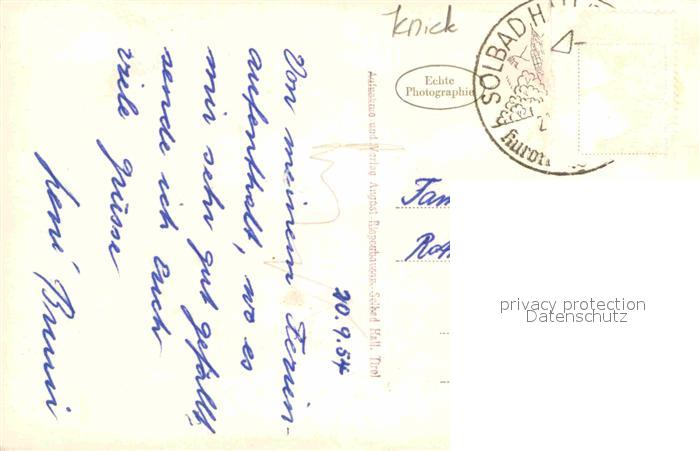 Knick
20.9.54
Von meinem Ferien-
aufenthalt, wo es
mir sehr gut gefällt
sende ich Euch
viele Grüsse
Aufnahme und Verlag August Riepenhausen, Solbad Hall, Tirol
Echte
Photographie
SOLBAD H
Kuror
Fam
Rot
privacy protection
Datenschutz